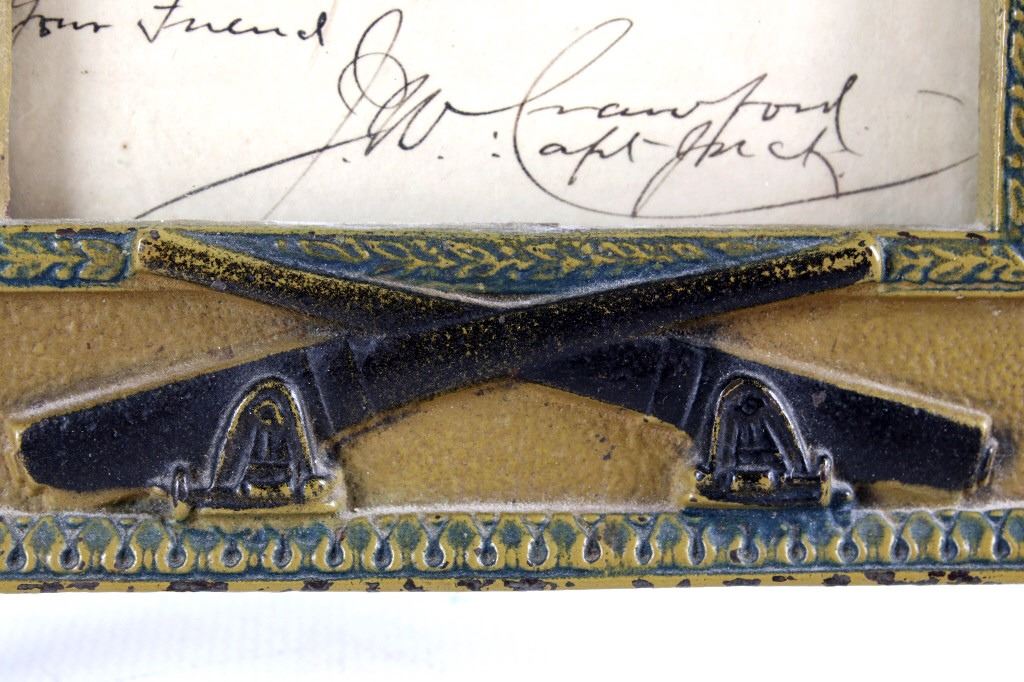 Your Friend
J. W. Crawford
: Capt Jack